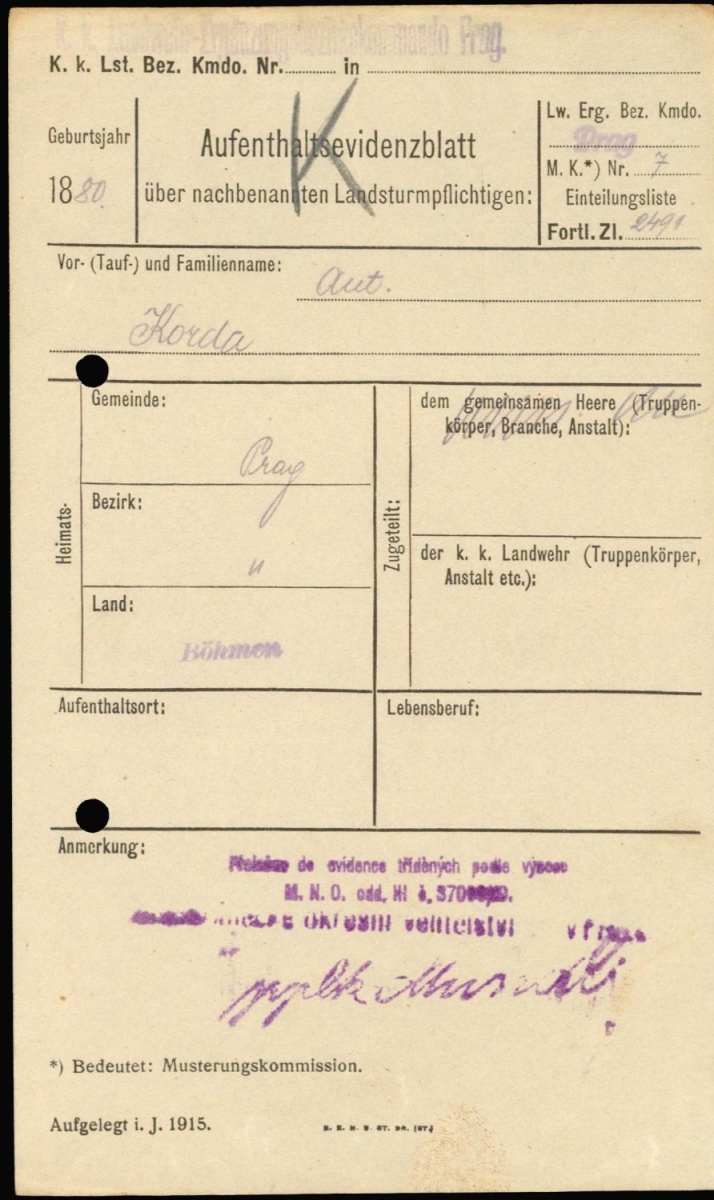 K. k. Landwehr-Ergänzungsbezirkskommando Prag.
K. k. Lst. Bez. Kmdo. Nr. in
Geburtsjahr
1880
Aufenthaltsevidenzblatt
über nachbenannten Landsturmpflichtigen:
K
Lw. Erg. Bez. Kmdo.
Prag
M. K.*) Nr. 7
Einteilungsliste
Fortl. Zl. 2491
Vor- (Tauf-) und Familienname:
Ant.
Korda
Heimats-
Gemeinde:
Prag
Bezirk:
"
Land:
Böhmen
Zugeteilt:
dem gemeinsamen Heere (Truppen-
körper, Branche, Anstalt):
der k. k. Landwehr (Truppenkörper,
Anstalt etc.):
Aufenthaltsort:
Lebensberuf:
Anmerkung:
de evidence tříděných podle výnosu
M. N. O. odd.
okresní velitelství v
*) Bedeutet: Musterungskommission.
Aufgelegt i. J. 1915.